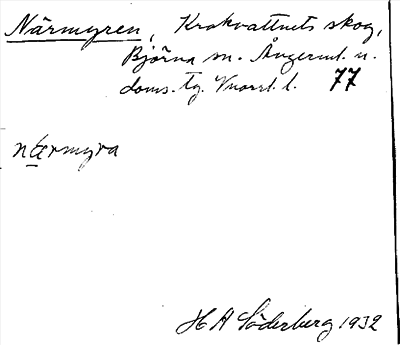 Närmyren, Krokvattnets skog,
Björna sn. Ångerml. n.
doms. tg. Vnorrl. l. 77
nærmyra
H A Söderberg 1932